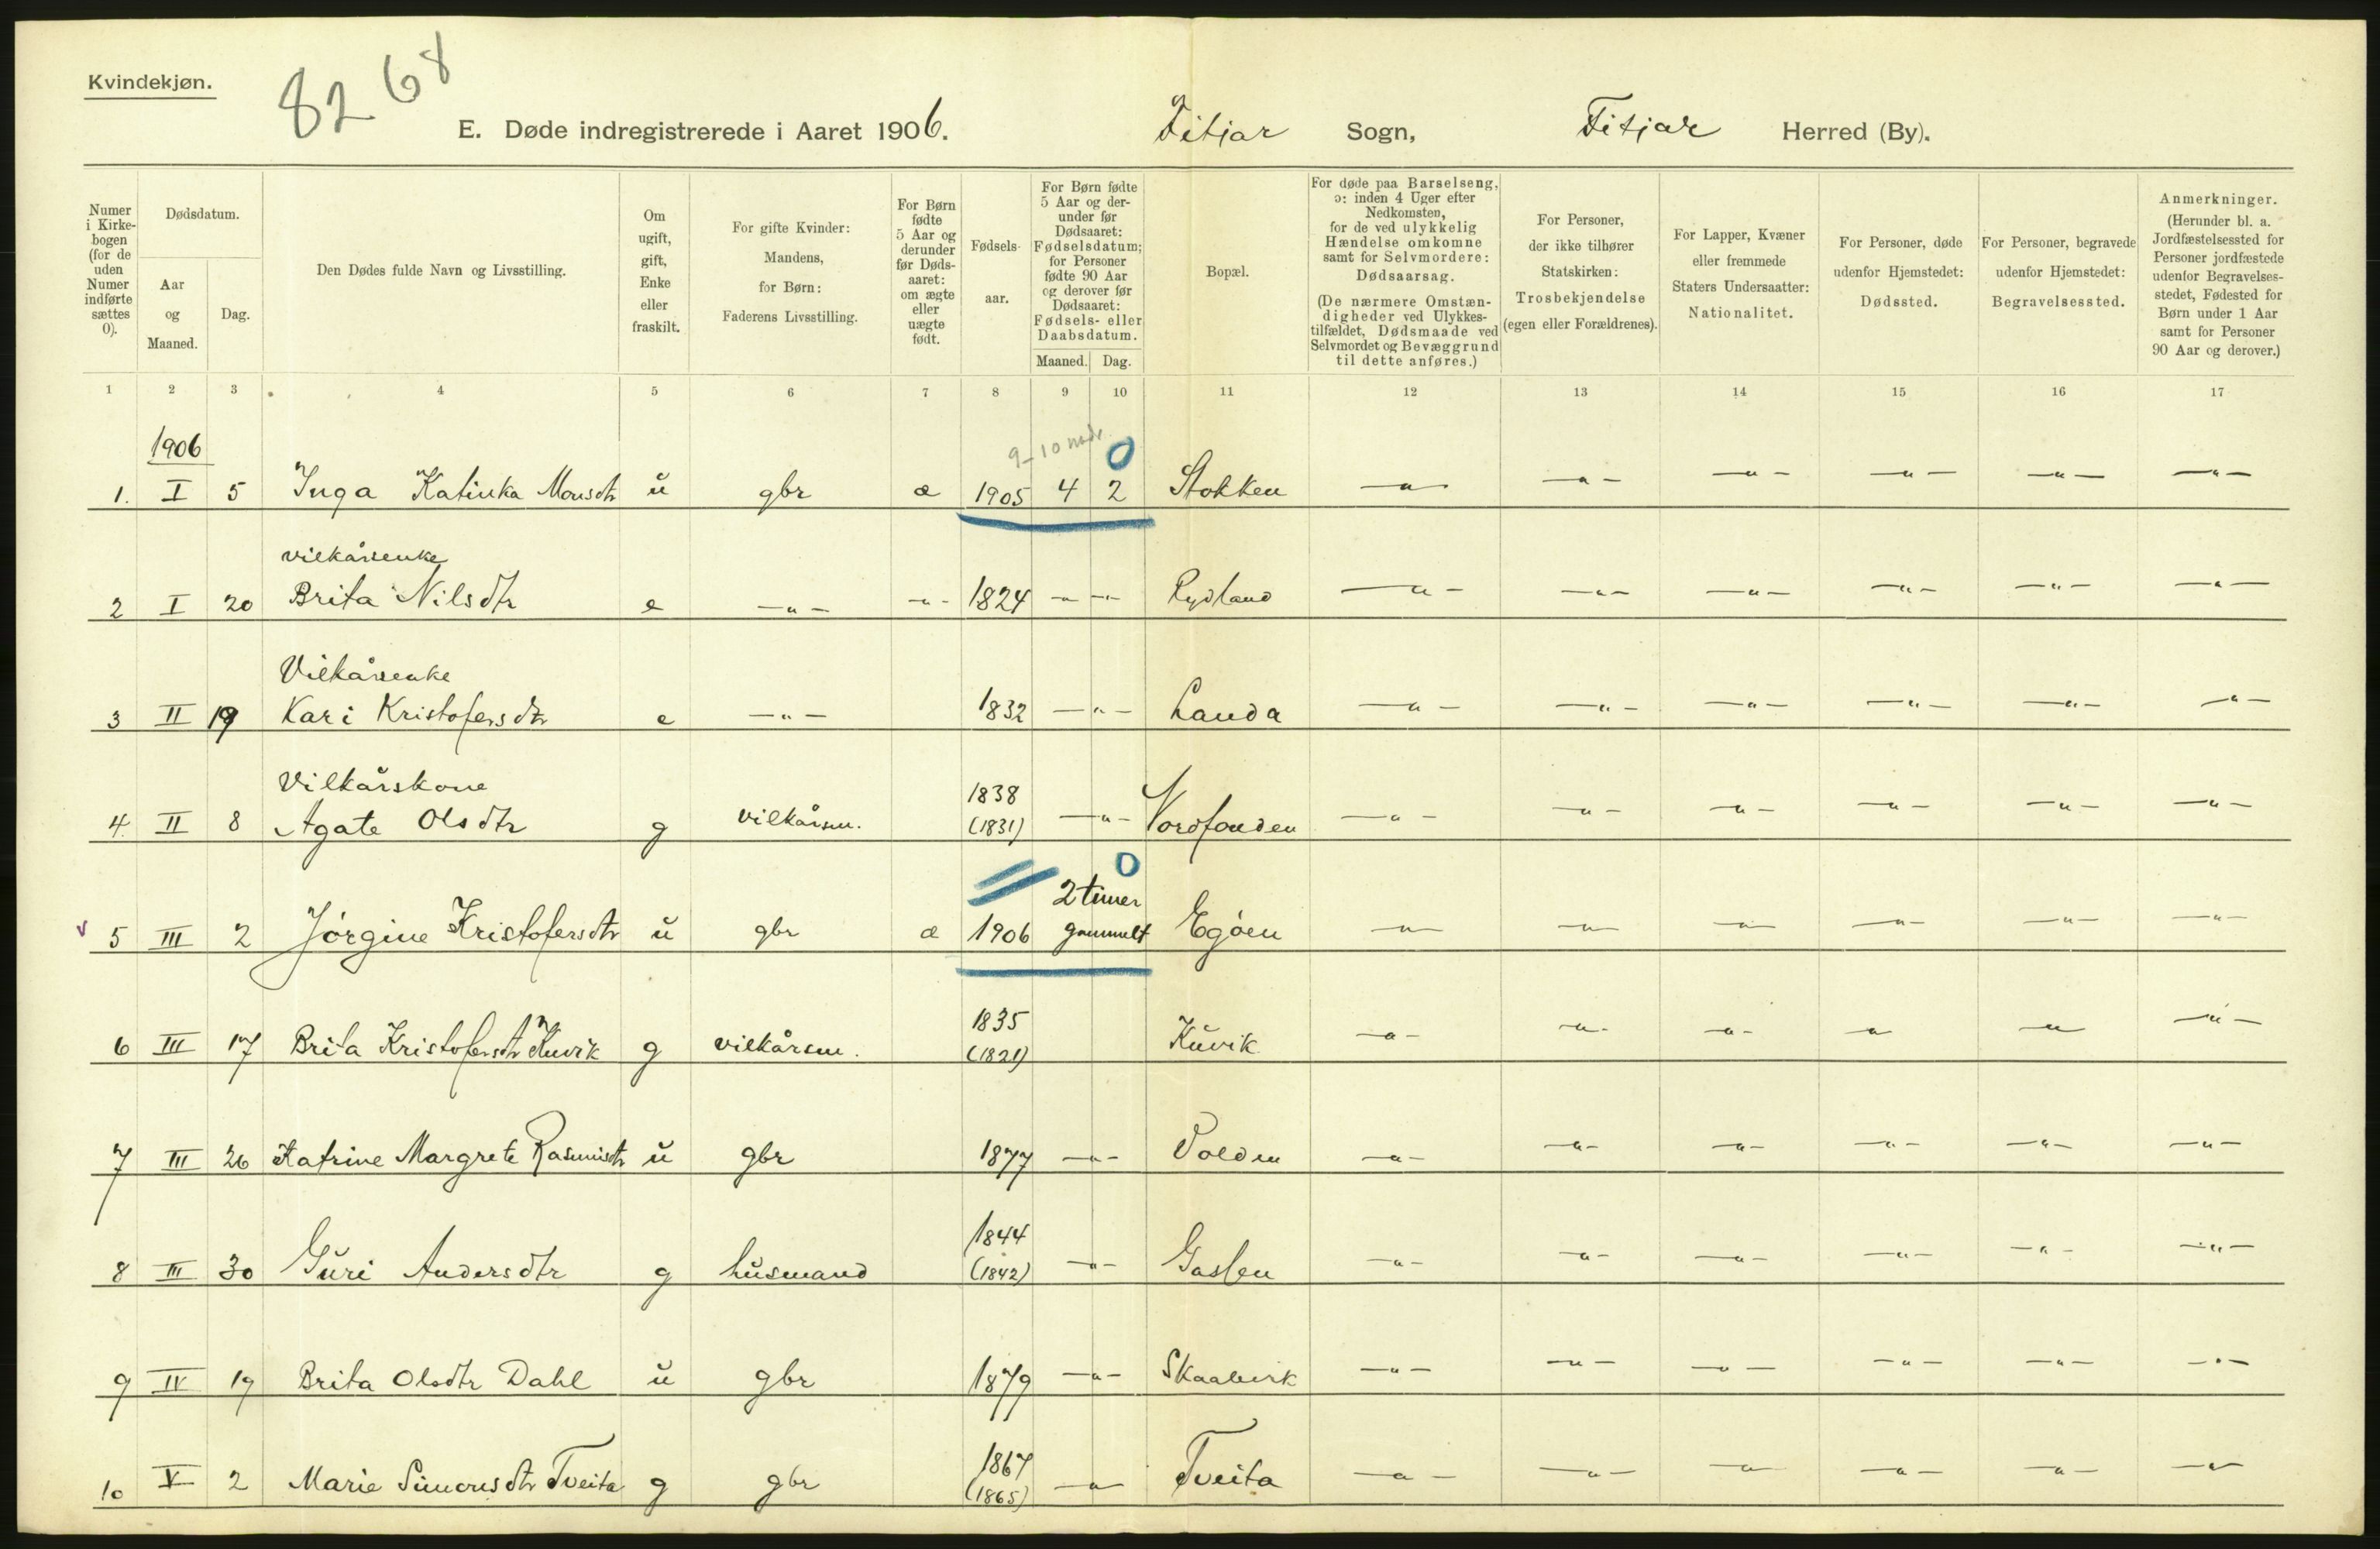 Kvindekjøn.
82 68
E. Døde indregistrerede i Aaret 1906. Fitjar Sogn, Fitjar Herred (By).
Numer i Kirkebogen (for de uden Numer indførte sættes 0).
Dødsdatum.
Aar og Maaned.
Dag.
Den Dødes fulde Navn og Livsstilling.
Om ugift, gift, Enke eller fraskilt.
For gifte Kvinder: Mandens, for Børn: Faderens Livsstilling.
For Børn fødte 5 Aar og derunder før Dødsaaret: om ægte eller uægte født.
Fødselsaar.
For Børn fødte 5 Aar og derunder før Dødsaaret: Fødselsdatum; for Personer fødte 90 Aar og derover før Dødsaaret: Fødsels- eller Daabsdatum.
Maaned. Dag.
Bopæl.
For døde paa Barselseng, ɔ: inden 4 Uger efter Nedkomsten, for de ved ulykkelig Hændelse omkomne samt for Selvmordere: Dødsaarsag.
(De nærmere Omstændigheder ved Ulykkestilfældet, Dødsmaade ved Selvmordet og Bevæggrund til dette anføres.)
For Personer, der ikke tilhører Statskirken: Trosbekjendelse (egen eller Forældrenes).
For Lapper, Kvæner eller fremmede Staters Undersaatter: Nationalitet.
For Personer, døde udenfor Hjemstedet: Dødssted.
For Personer, begravede udenfor Hjemstedet: Begravelsessted.
Anmerkninger.
(Herunder bl. a. Jordfæstelsessted for Personer jordfæstede udenfor Begravelsesstedet, Fødested for Børn under 1 Aar samt for Personer 90 Aar og derover.)
1 2 3 4 5 6 7 8 9 10 11 12 13 14 15 16 17
1906
9-10 mdr. 0
1. I 5 Inga Katinka Monsdtr u gbr æ 1905 4 2 Stokken —"— —"— —"— —"— —"— —"—
vilkårsenke
2 I 20 Brita Nilsdtr e —"— —"— 1824 —"— Rydland —"— —"— —"— —"— —"— —"—
Vilkårsenke
3 II 19 Kari Kristofersdtr e —"— 1832 —"— Landa —"— —"— —"— —"— —"— —"—
Vilkårskone 1838
4. II 8 Agate Olsdtr g vilkårsm. (1831) —"— Nordfonden —"— —"— —"— —"— —"— —"—
0
2 timer
5 III 2 Jórgine Kristofersdtr u gbr æ 1906 gammelt Egóen —"— —"— —"— —"— —"— —"—
1835
6 III 17 Brita Kristofersdtr Kuvik g vilkårsm. (1821) Kuvik —"— —"— —"— —"— —"— —"—
7 III 26 Katrine Margrete Rasmusdtr u gbr 1877 —"— Volden —"— —"— —"— —"— —"— —"—
1844
8 III 30 Guri Andersdtr g husmand (1842) —"— Gaslen —"— —"— —"— —"— —"— —"—
9 IV 19 Brita Olsdtr Dahl u gbr 1879 —"— Skaalevik —"— —"— —"— —"— —"— —"—
1867
10 V 2 Marie Simonsdtr Tveita g gbr (1865) —"— Tveita —"— —"— —"— —"— —"— —"—